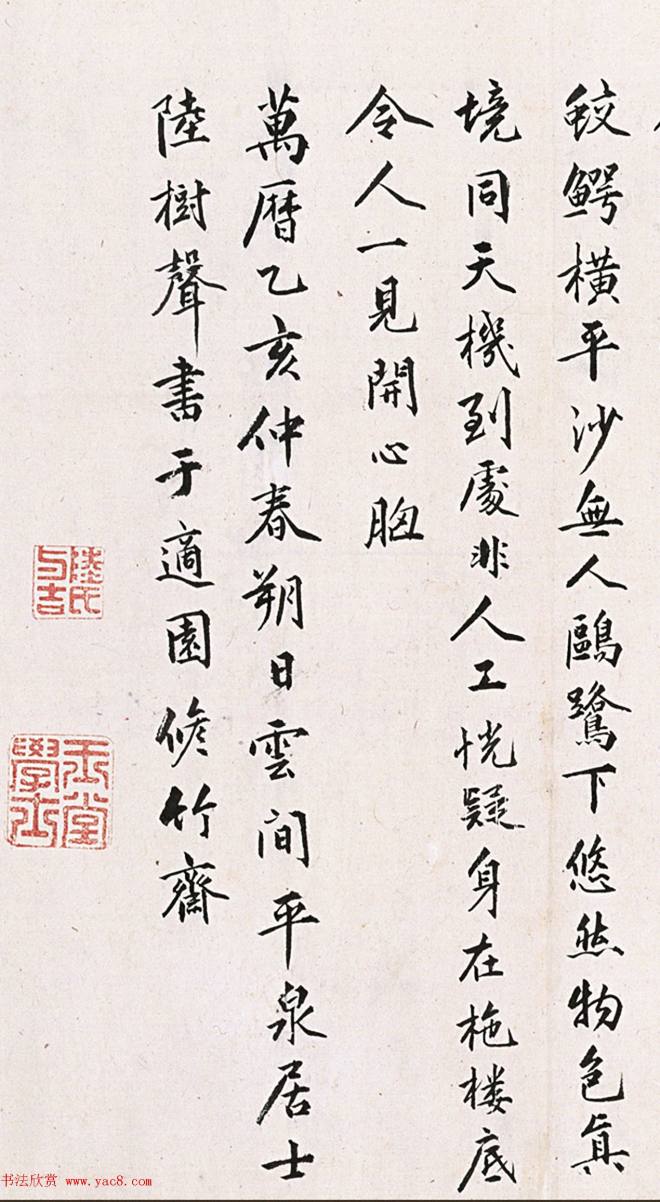 鮫鰐橫平沙無人鷗鷺下悠然物色真
境同天機到處非人工恍疑身在柂樓底
令人一見開心胸
萬曆乙亥仲春朔日雲間平泉居士
陸樹聲書于適園脩竹齋
陸氏与吉
玉堂學士
书法欣赏 www.yac8.com